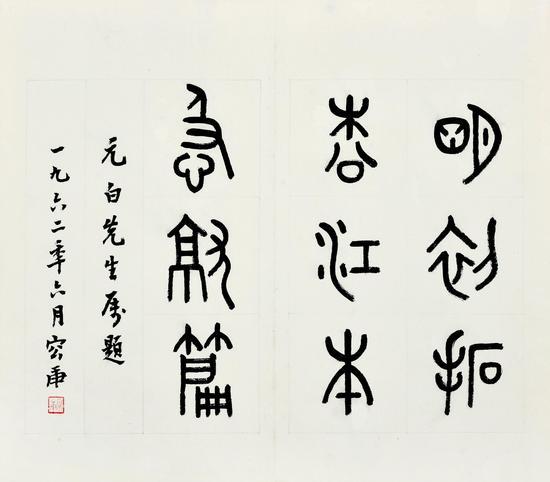 明初拓
松江本
急就篇
元白先生属題
一九六二年六月容庚